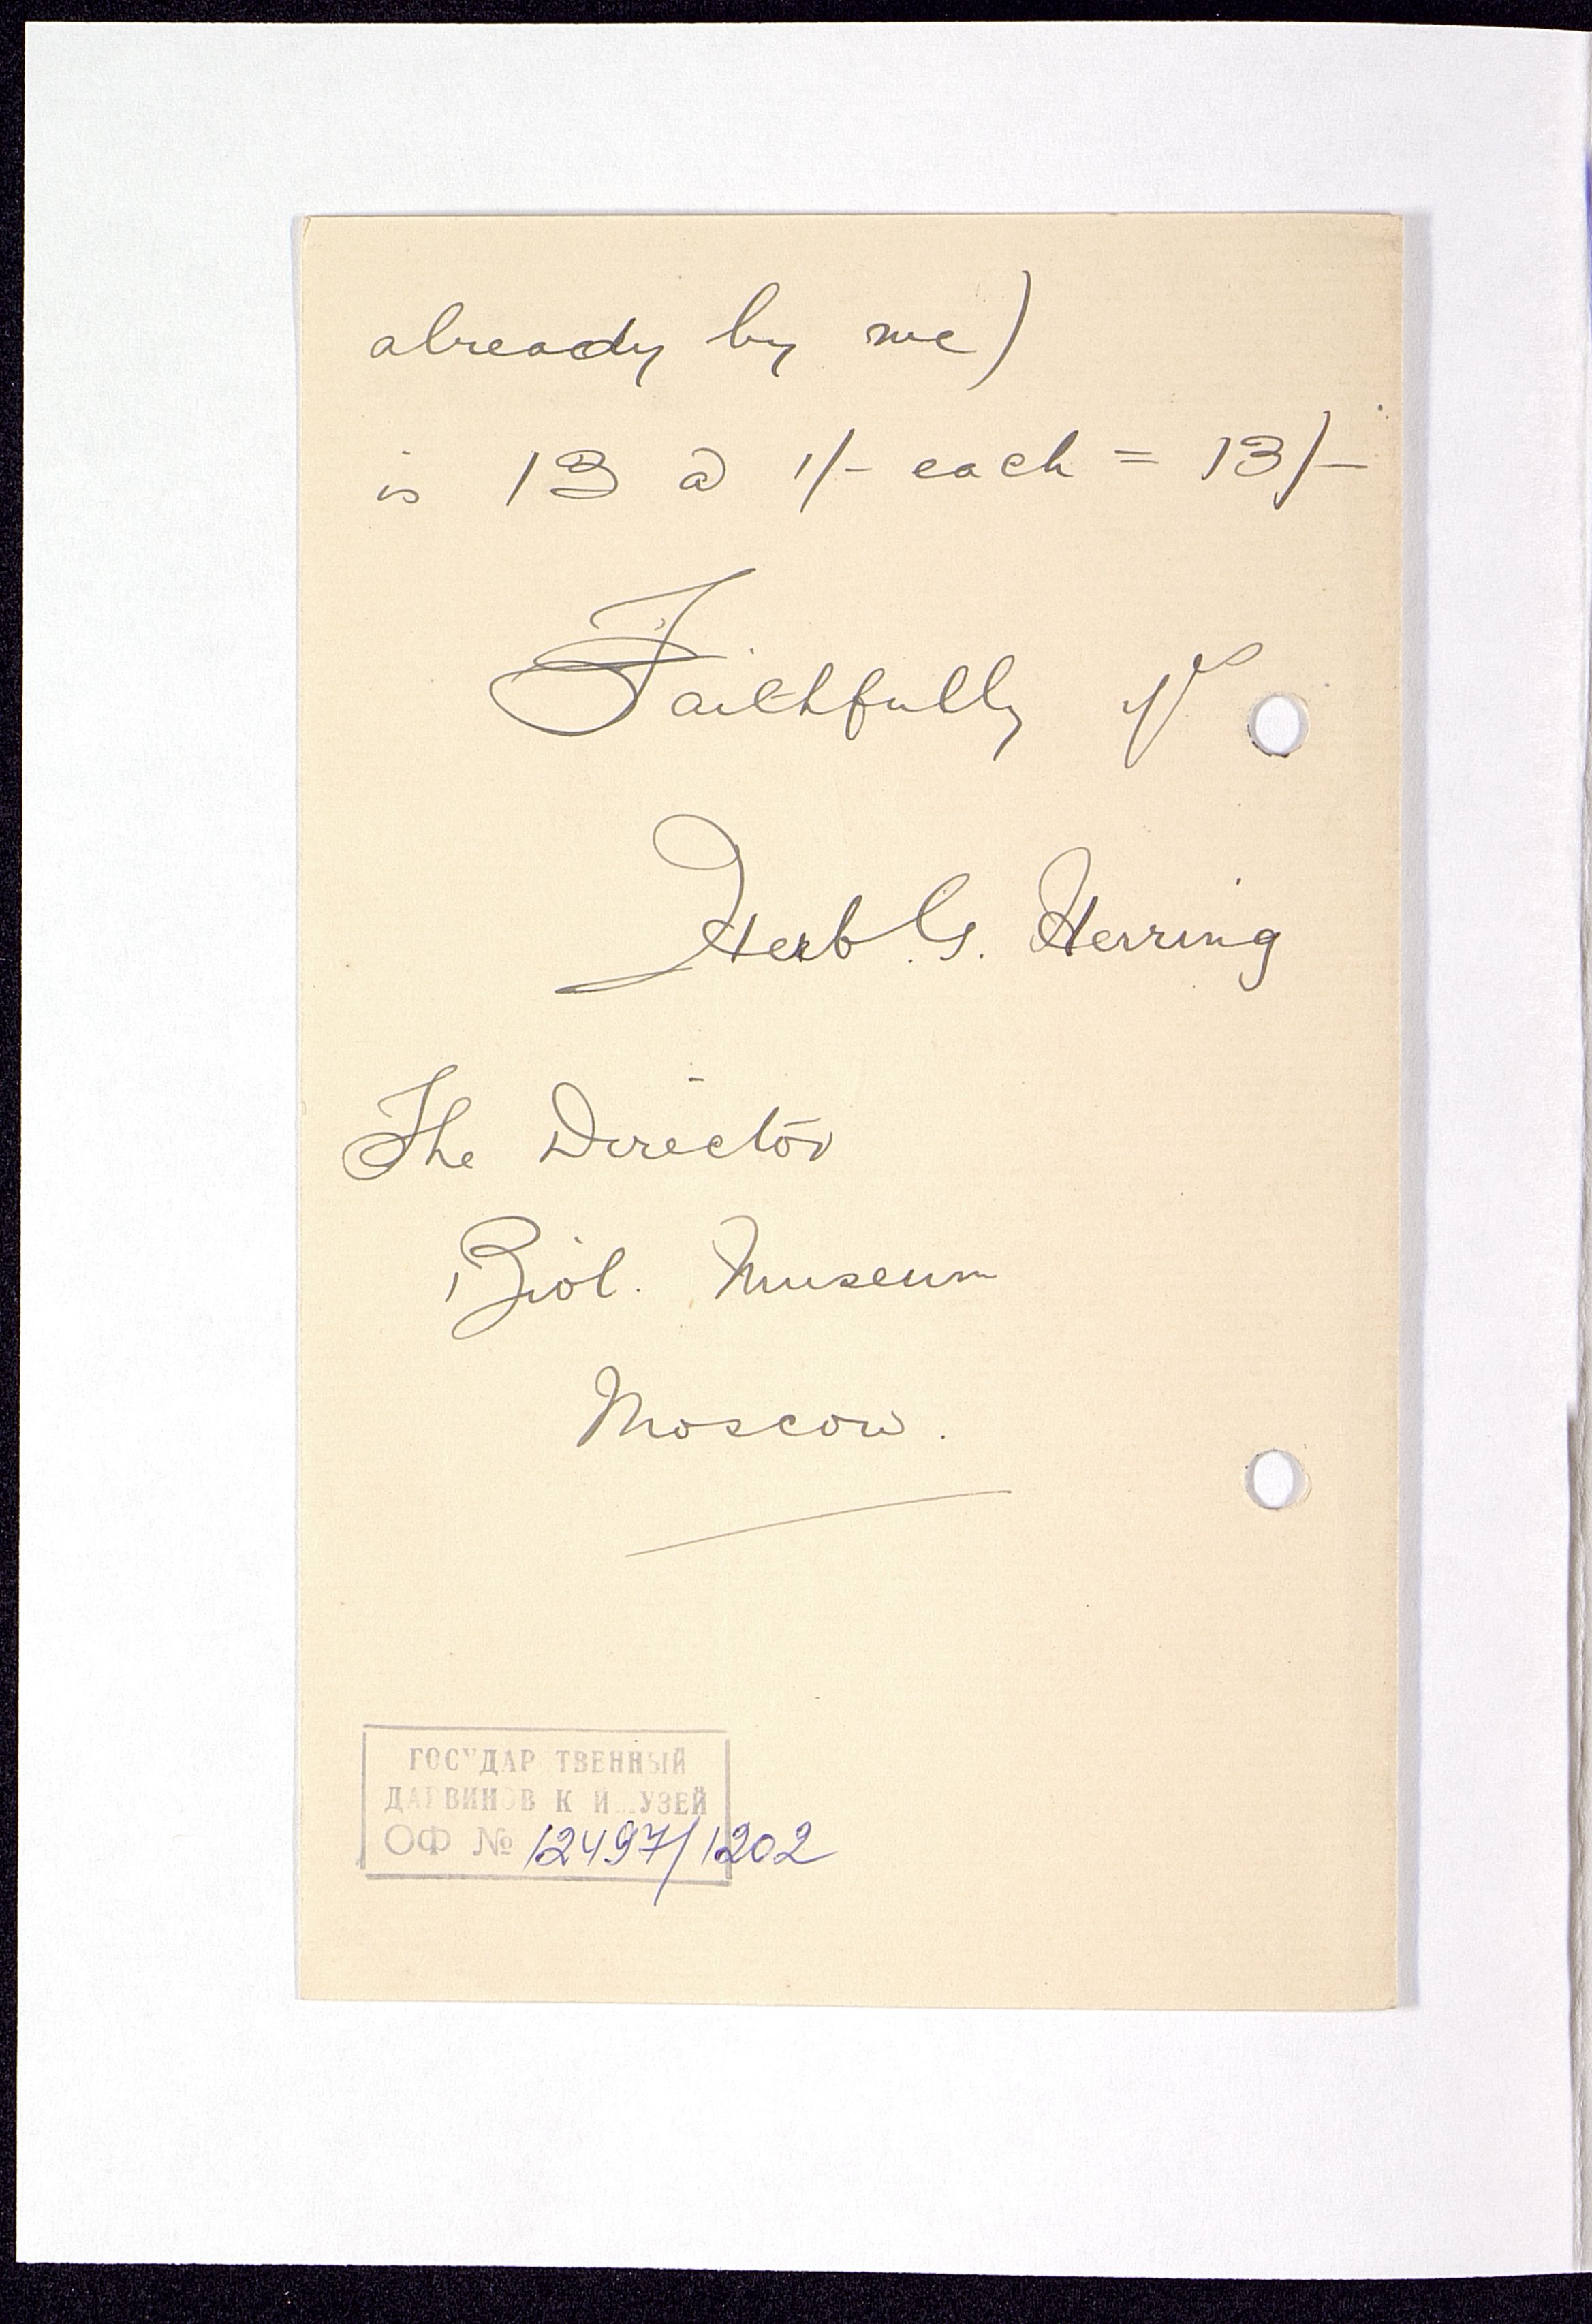 already by me)
is 13 @ 1/- each = 13/-
Faithfully yrs
Herb G. Herring
The Director
Biol. Museum
Moscow.
ГОСУДАРТВЕННЫЙ
ДАРВИНОВ К Й УЗЕЙ
ОФ № 12497/1202